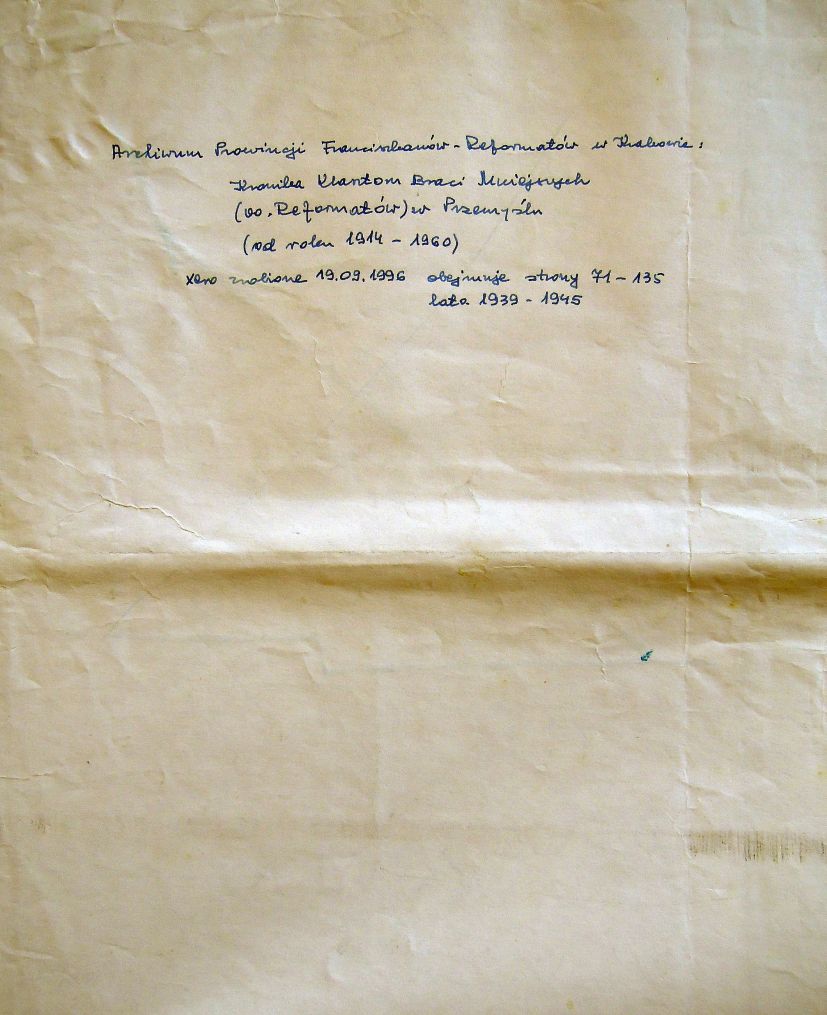 Archiwum Prowincji Franciszkanów - Reformatów w Krakowie:
Kronika Klasztoru Braci Mniejszych
(oo. Reformatów) w Przemyślu
(od roku 1914 - 1960)
xero zrobione 19.09.1996 obejmuje strony 71 - 135
lata 1939 - 1945